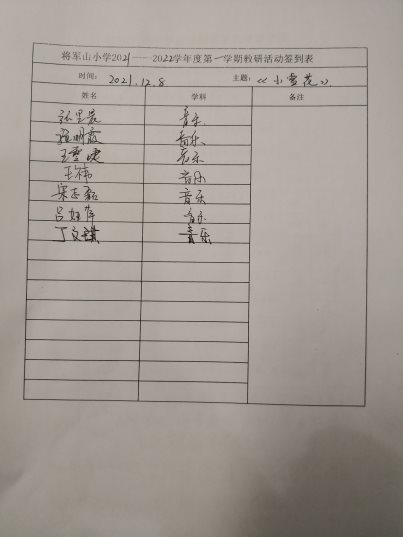 将军山小学2021——2022学年度第一学期教研活动签到表
时间： 2021.12.8 主题：《小雪花》
姓名 学科 备注
音乐
音乐
王雪 音乐
王祎 音乐
宋志 音乐
吕 萍 音乐
丁文 音乐